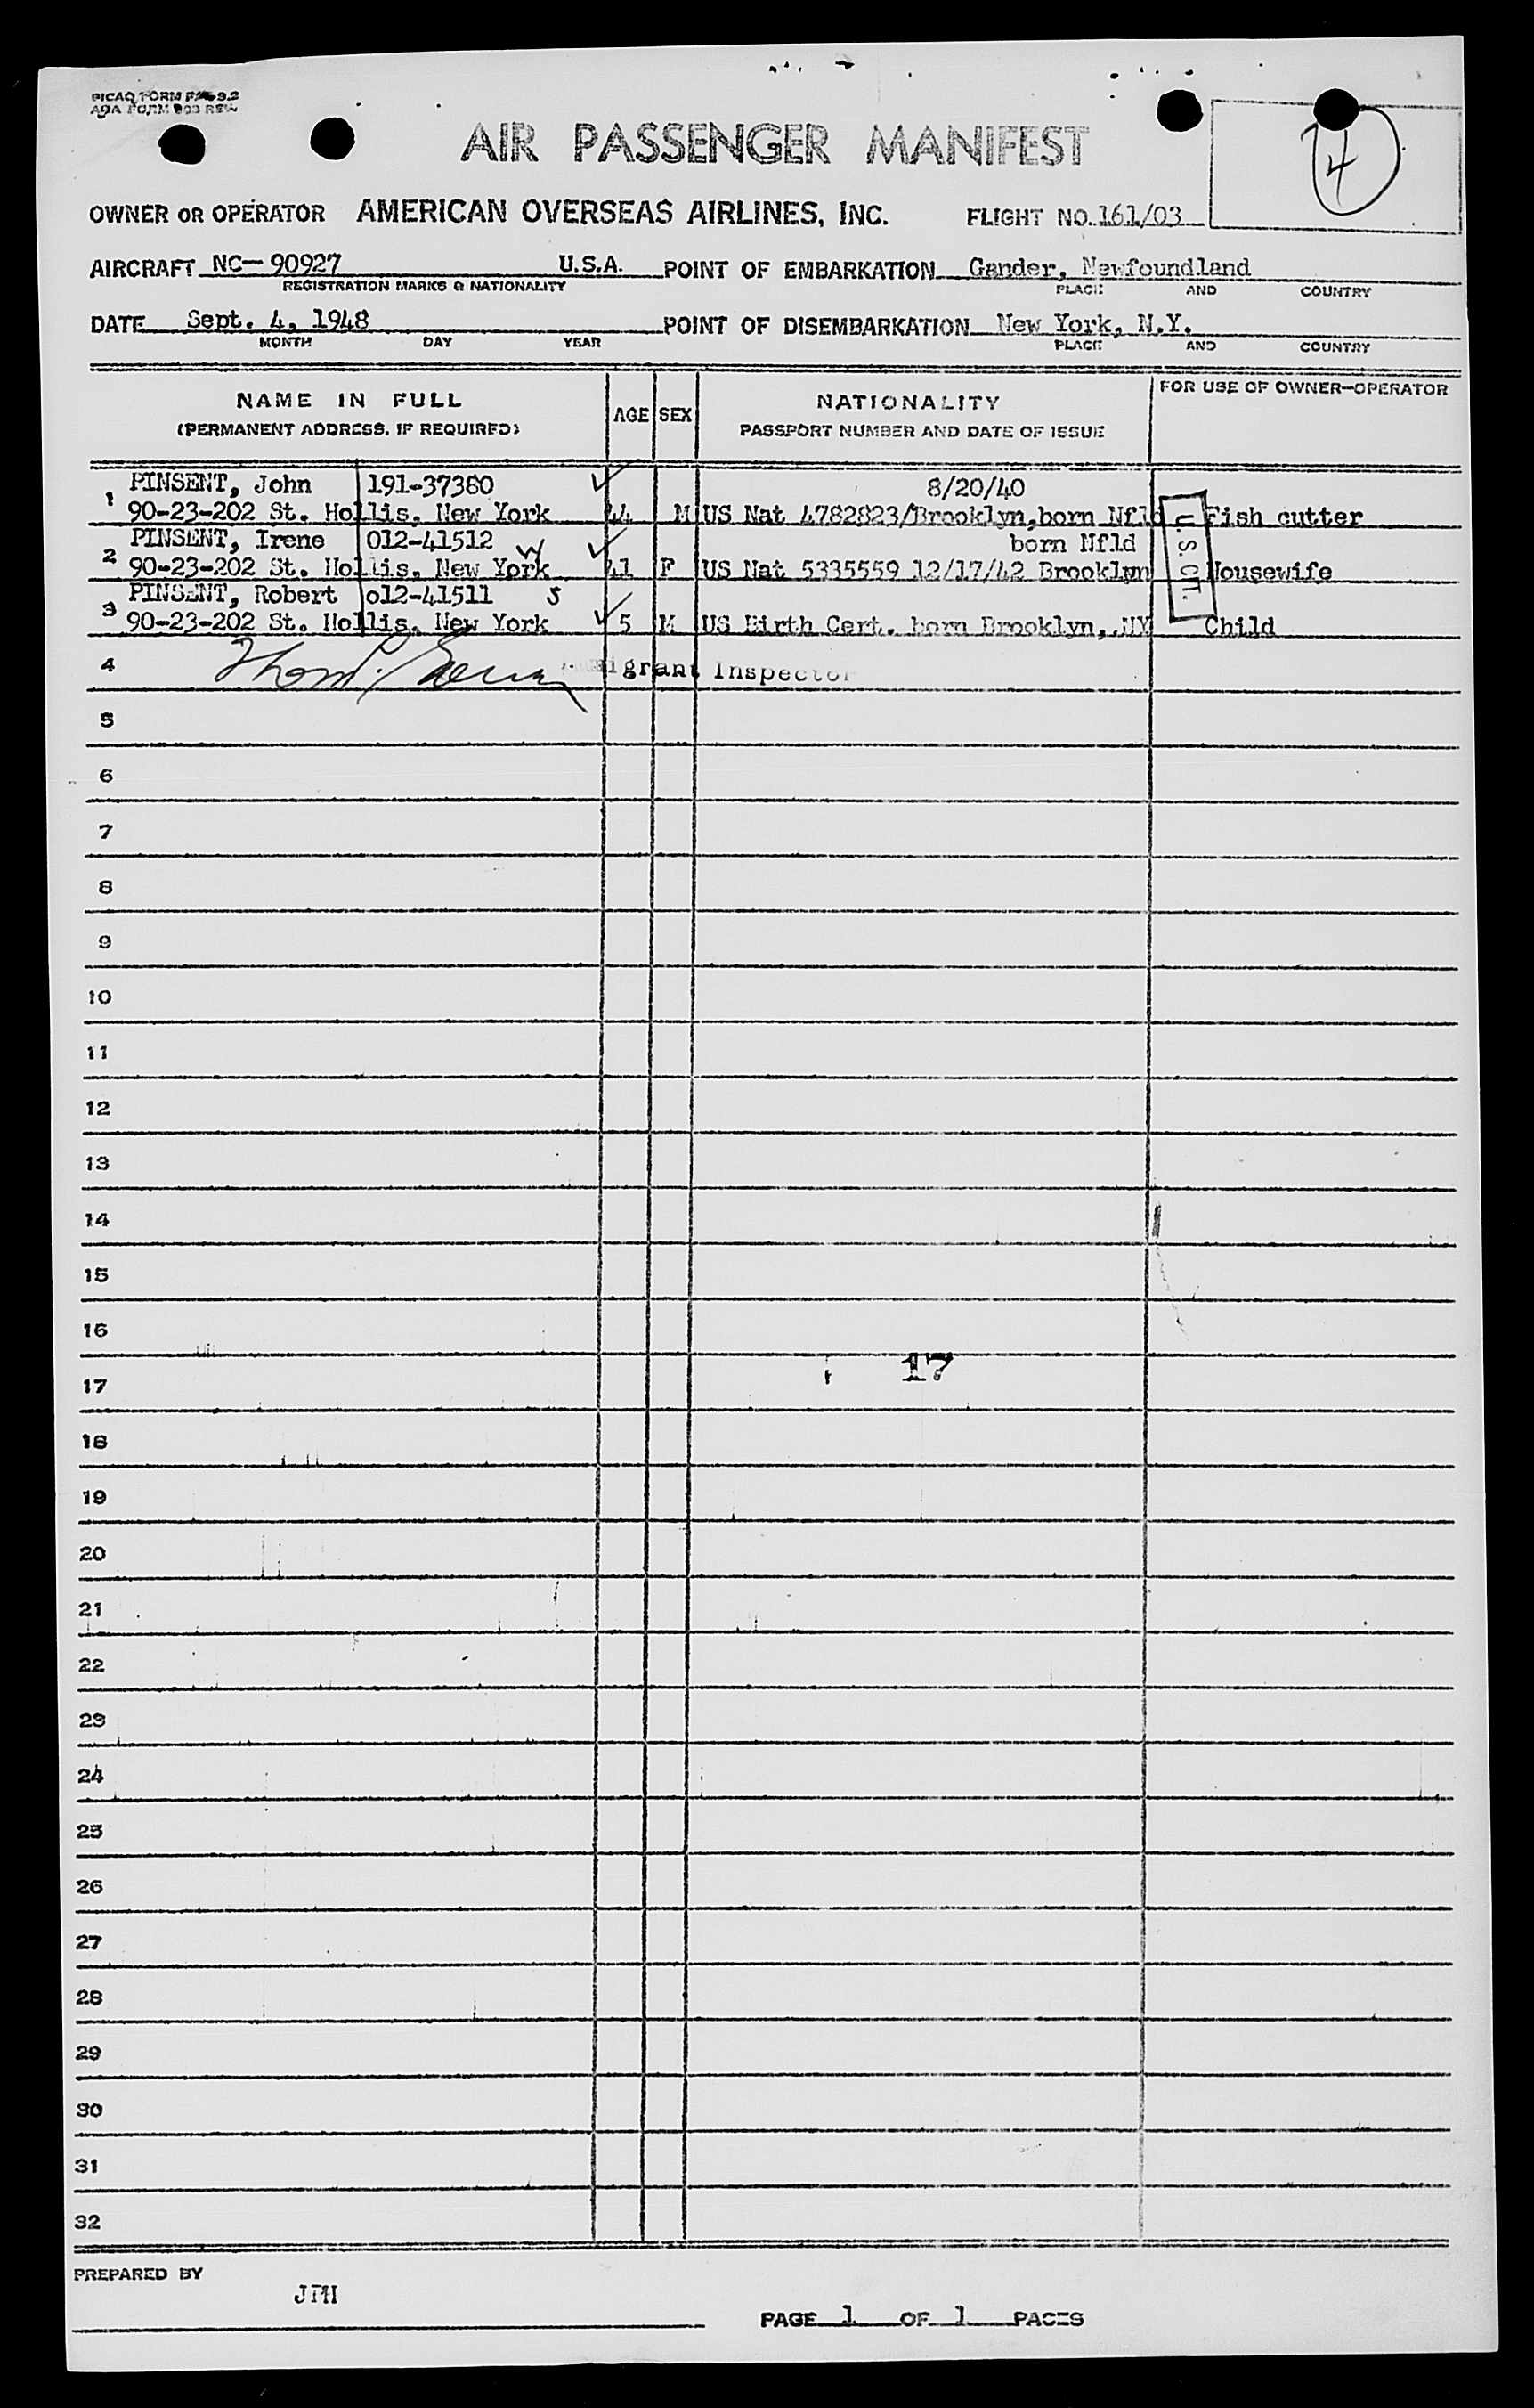 PICAO FORM
AOA FORM
AIR PASSENGER MANIFEST
4
OWNER OR OPERATOR AMERICAN OVERSEAS AIRLINES, INC. FLIGHT NO. 161/03
AIRCRAFT NC-90927 U.S.A. POINT OF EMBARKATION Gander, Newfoundland
REGISTRATION MARKS & NATIONALITY PLACE AND COUNTRY
DATE Sept. 4, 1948 POINT OF DISEMBARKATION New York, N.Y.
MONTH DAY YEAR PLACE AND COUNTRY
NAME IN FULL AGE SEX NATIONALITY FOR USE OF OWNER-OPERATOR
(PERMANENT ADDRESS, IF REQUIRED) PASSPORT NUMBER AND DATE OF ISSUE
PINSENT, John 191-37380 8/20/40
1 90-23-202 St. Hollis, New York 44 M US Nat 4782823/Brooklyn,born Nfld Fish cutter
PINSENT, Irene 012-41512 W born Nfld
2 90-23-202 St. Hollis, New York 41 F US Nat 5335559 12/17/42 Brooklyn Housewife
PINSENT, Robert 012-41511 S
3 90-23-202 St. Hollis, New York 5 M US Birth Cert. born Brooklyn, NY Child
U.S. CIT.
4 Immigrant Inspector
5
6
7
8
9
10
11
12
13
14
15
16
17 17
18
19
20
21
22
23
24
25
26
27
28
29
30
31
32
PREPARED BY
JPH
PAGE 1 OF 1 PAGES